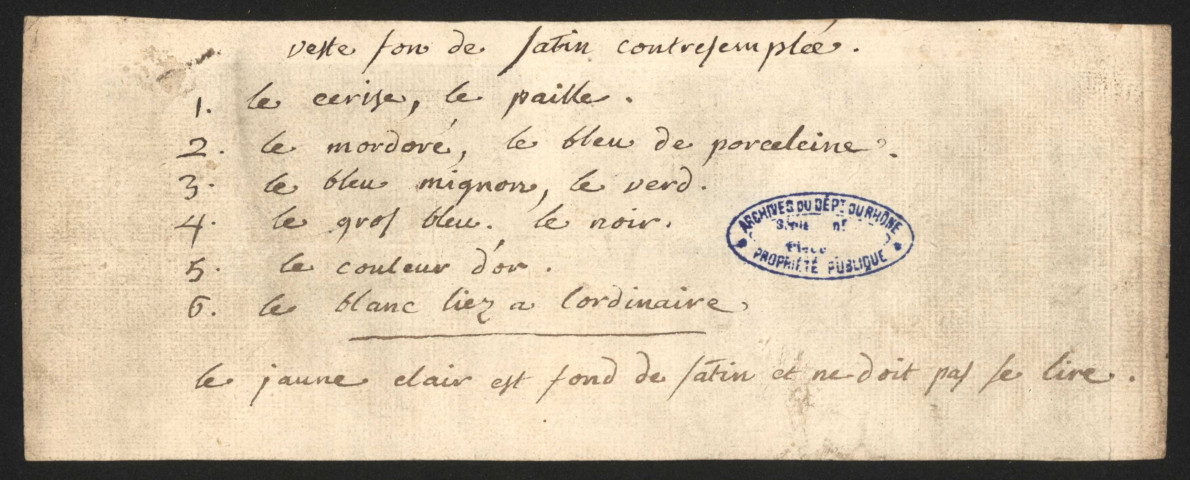 veste fon de satin contresemplée.
1. le cerise, le paille.
2. le mordoré, le bleu de porceleine.
3. le bleu mignon, le verd.
4. le gros bleu. le noir.
5. le couleur d'or.
6. le blanc liez a lordinaire
le jaune clair est fond de satin et ne doit pas se lire.
ARCHIVES DU DÉPT DU RHÔNE
Série nº
PROPRIÉTÉ PUBLIQUE